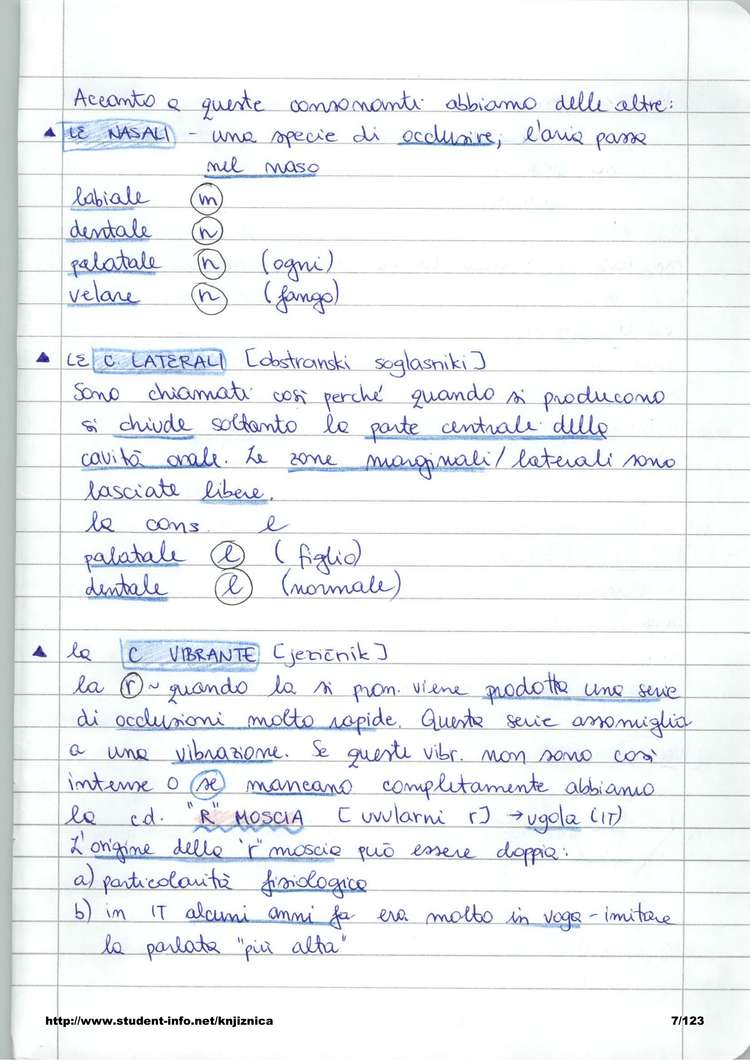 Accanto a queste consonanti abbiamo delle altre:
▲ LE NASALI - una specie di occlusive; l'aria passa
nel naso
labiale m
dentale n
palatale n (ogni)
velare n (fango)
▲ LE C. LATERALI [obstranski soglasniki]
Sono chiamati così perché quando si producono
si chiude soltanto la parte centrale della
cavità orale. Le zone marginali/laterali sono
lasciate libere.
la cons. l
palatale l (figlio)
dentale l (normale)
▲ la C VIBRANTE [jezičnik]
la r ~ quando la si pron. viene prodotta una serie
di occlusioni molto rapide. Questa serie assomiglia
a una vibrazione. Se queste vibr. non sono così
intense o se mancano completamente abbiamo
la cd. "R" MOSCIA [uvularni r] → ugola (IT)
L'origine della "r" moscia può essere doppia:
a) particolarità fisiologica
b) in IT alcuni anni fa era molto in voga - imitare
la parlata "più alta"
http://www.student-info.net/knjiznica 7/123